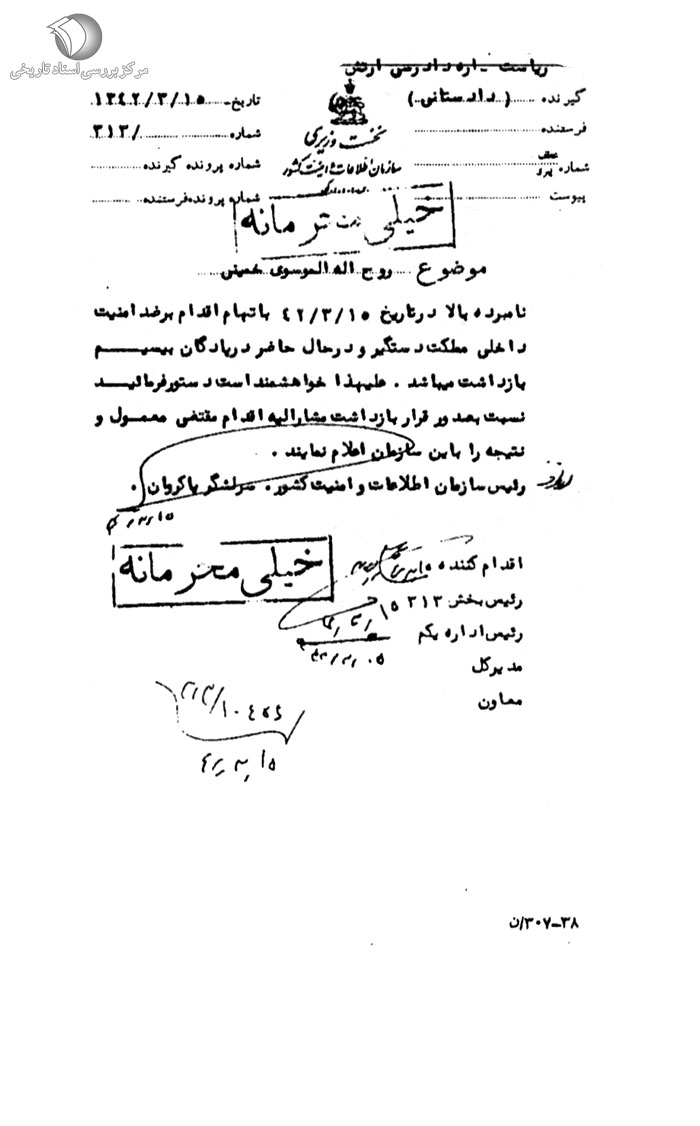 مرکز بررسی اسناد تاریخی
ریاست اداره دادرسی ارتش
گیرنده (دادستانی)
فرستنده
شماره
پیوست
نخست وزیری
سازمان اطلاعات و امنیت کشور
تاریخ ۱۳۴۲/۳/۱۵
شماره /۳۱۳
شماره پرونده گیرنده
شماره پرونده فرستنده
خیلی محرمانه
موضوع روح اله الموسوی خمینی
نامبرده بالا در تاریخ ۴۲/۳/۱۵ باتهام اقدام برضد امنیت
داخلی مملکت دستگیر و درحال حاضر درپادگان بیسیم
بازداشت میباشد . علیهذا خواهشمند است دستور فرمائید
نسبت بصدور قرار بازداشت مشارالیه اقدام مقتضی معمول و
نتیجه را باین سازمان اعلام نمایند .
رئیس سازمان اطلاعات و امنیت کشور. سرلشگر پاکروان .
خیلی محرمانه
اقدام کننده
رئیس بخش ۳۱۳
رئیس اداره یکم
مدیرکل
معاون
۳۰۷-۳۸/ن